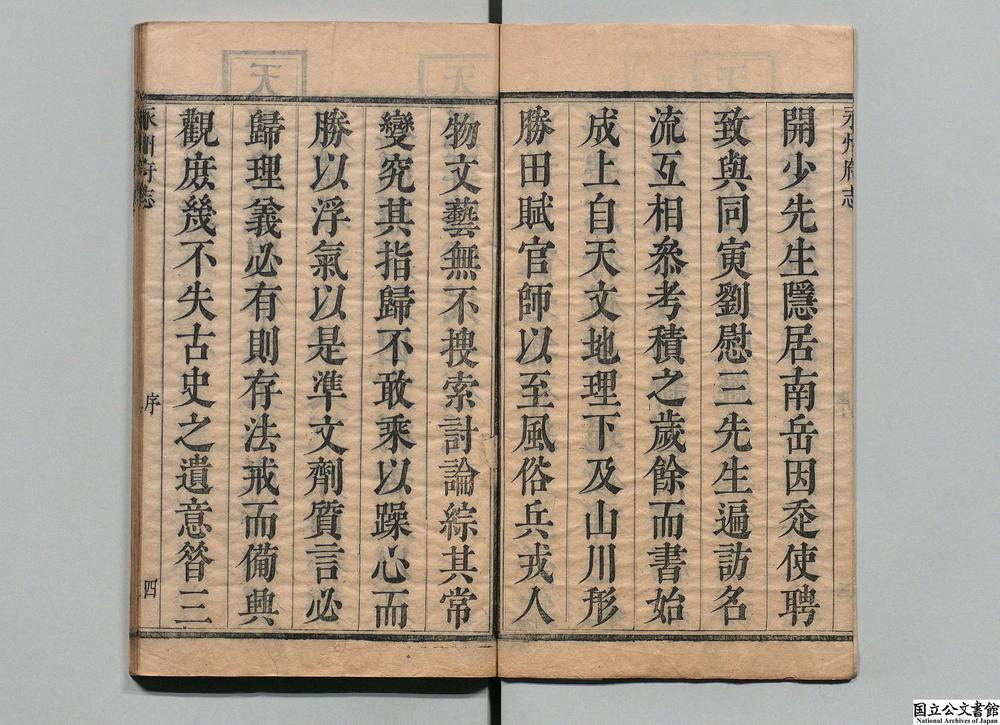 永州府志
開少先生隱居南岳因走使聘
致與同寅劉慰三先生遍訪名
流互相叅考積之歲餘而書始
成上自天文地理下及山川形
勝田賦官師以至風俗兵戎人
物文藝無不搜索討論綜其常
變究其指歸不敢乘以躁心而
勝以浮氣以是凖文劑質言必
歸理義必有則存法戒而備興
觀庶幾不失古史之遺意昝三
永州府志
序
四
国立公文書館
National Archives of Japan